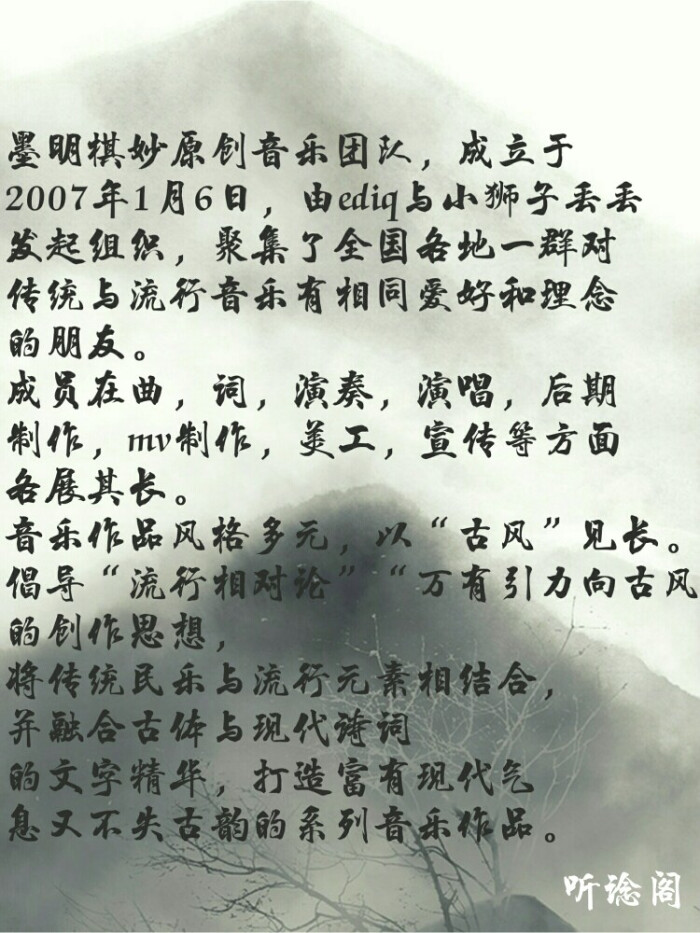 墨明棋妙原创音乐团队，成立于
2007年1月6日，由ediq与小狮子丢丢
发起组织，聚集了全国各地一群对
传统与流行音乐有相同爱好和理念
的朋友。
成员在曲，词，演奏，演唱，后期
制作，mv制作，美工，宣传等方面
各展其长。
音乐作品风格多元，以“古风”见长。
倡导“流行相对论”“万有引力向古风
的创作思想，
将传统民乐与流行元素相结合，
并融合古体与现代诗词
的文字精华，打造富有现代气
息又不失古韵的系列音乐作品。
听谂阁